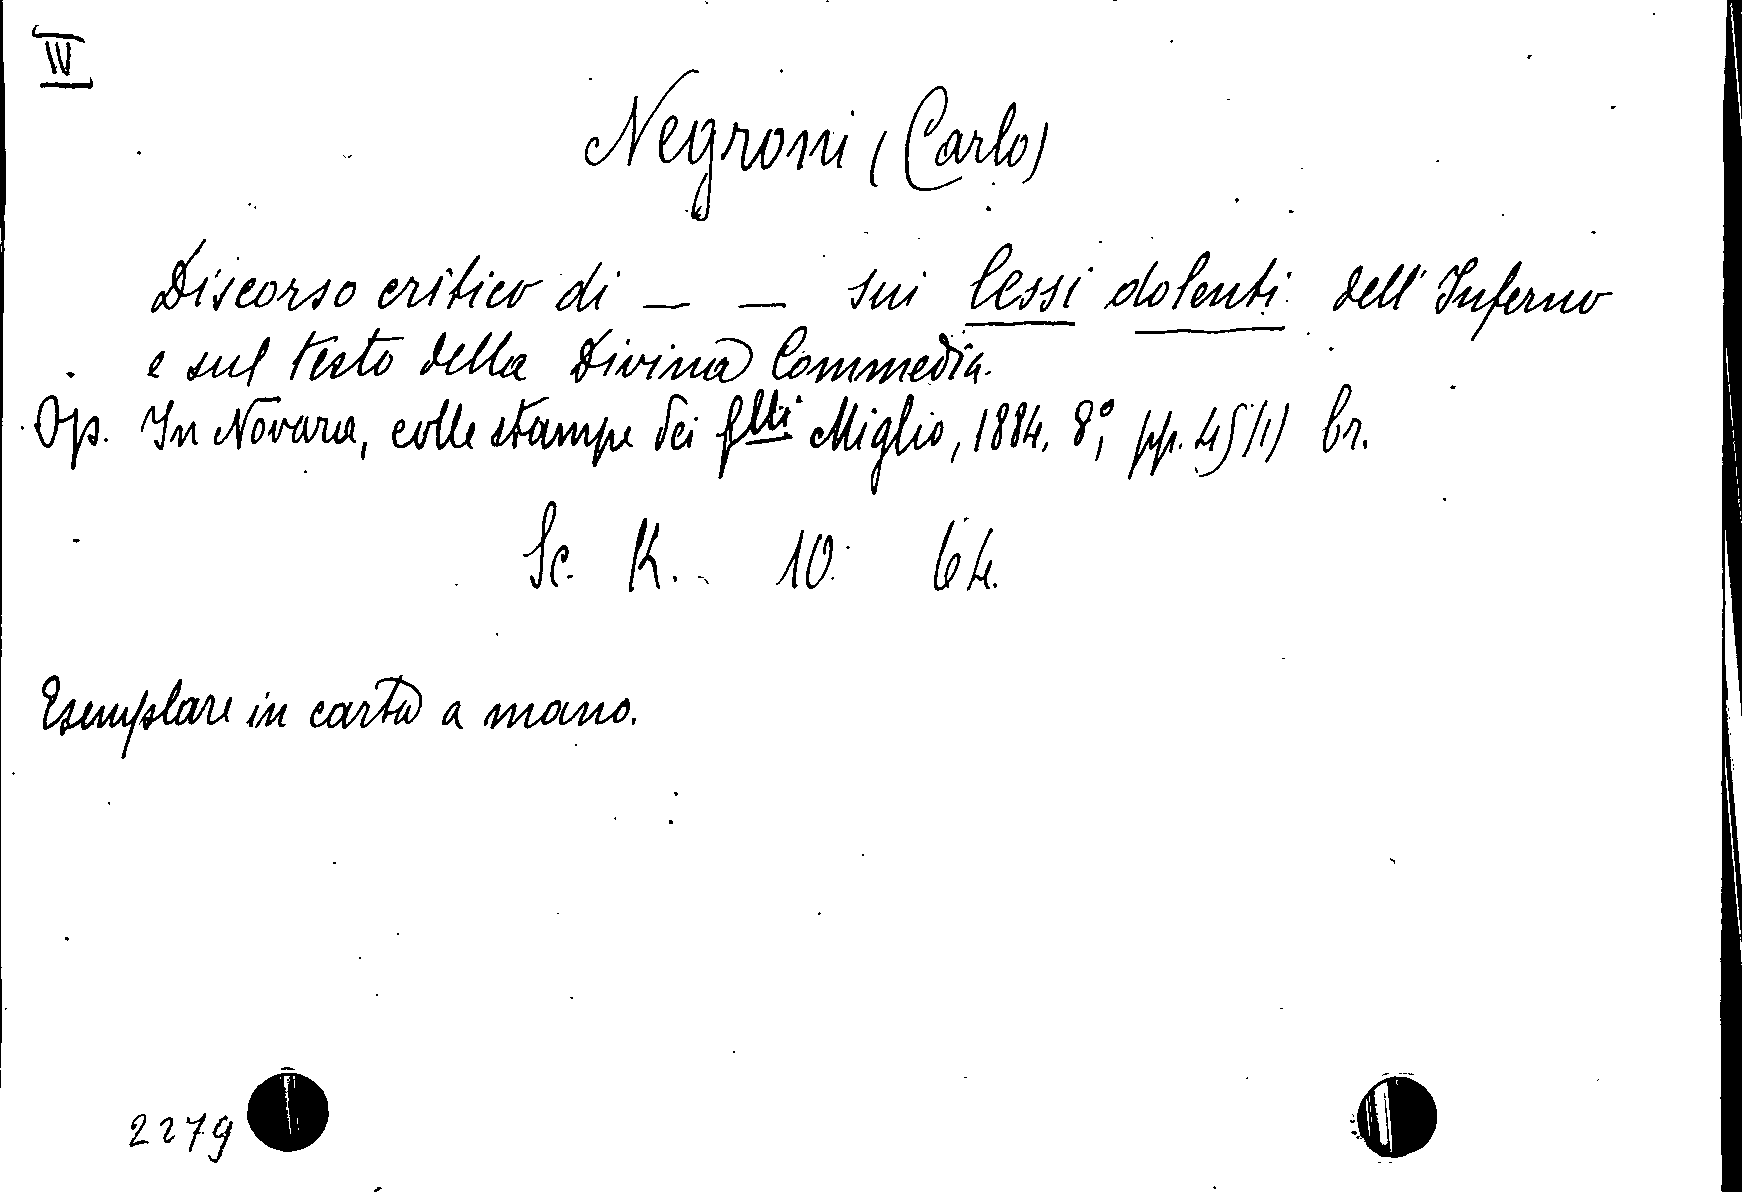 IV
Negroni (Carlo)
Discorso critico di _ _ sui lessi dolenti dell'Inferno
e sul testo della Divina Commedia.
Op. In Novara, colle stampe dei f.lli Miglio, 1884. 8°, pp. 45 (1) br.
Sc. K. 10. 64.
Esemplare in carta a mano.
2279